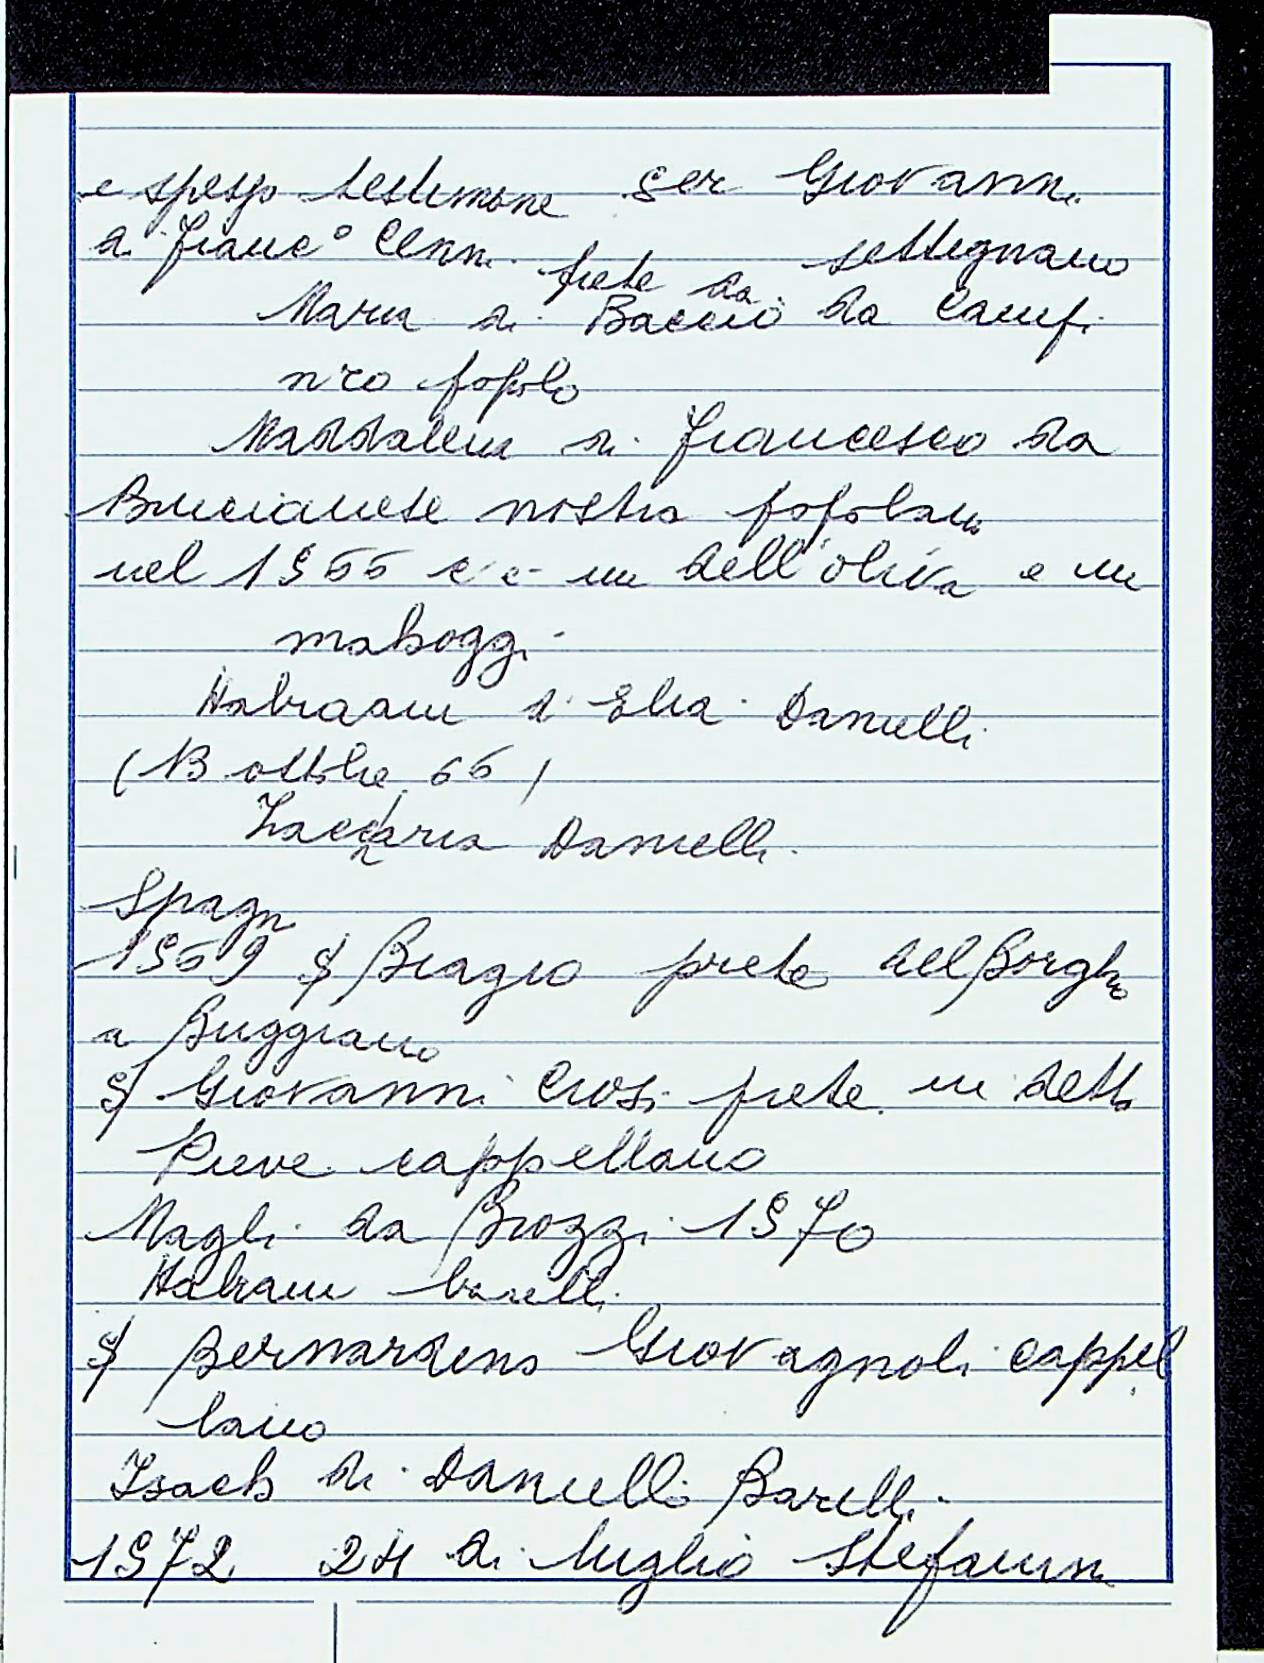 e spesso testimone ser Giovanni
di Franc° Cenni prete da settignano
Maria di Baccio da Campi
n'ro popolo
Maddalena di Francesco da
Brucianese nostra popolana
nel 1566 c'è un dell'oliva e un
Habraam d'Elia Danielli
(13 ottobre 66)
Zaccharia Danielli
Spagn
1569 S/ Biagio prete del Borgho
a Buggiano
S/ Giovanni Crosi prete in detta
Pieve cappellano
Magli da Brozzi 1570
Habram barelli
S/ Bernardino Giovagnoli cappel
lano
Isach di Danielli Barelli
1572 24 di luglio Stefanini